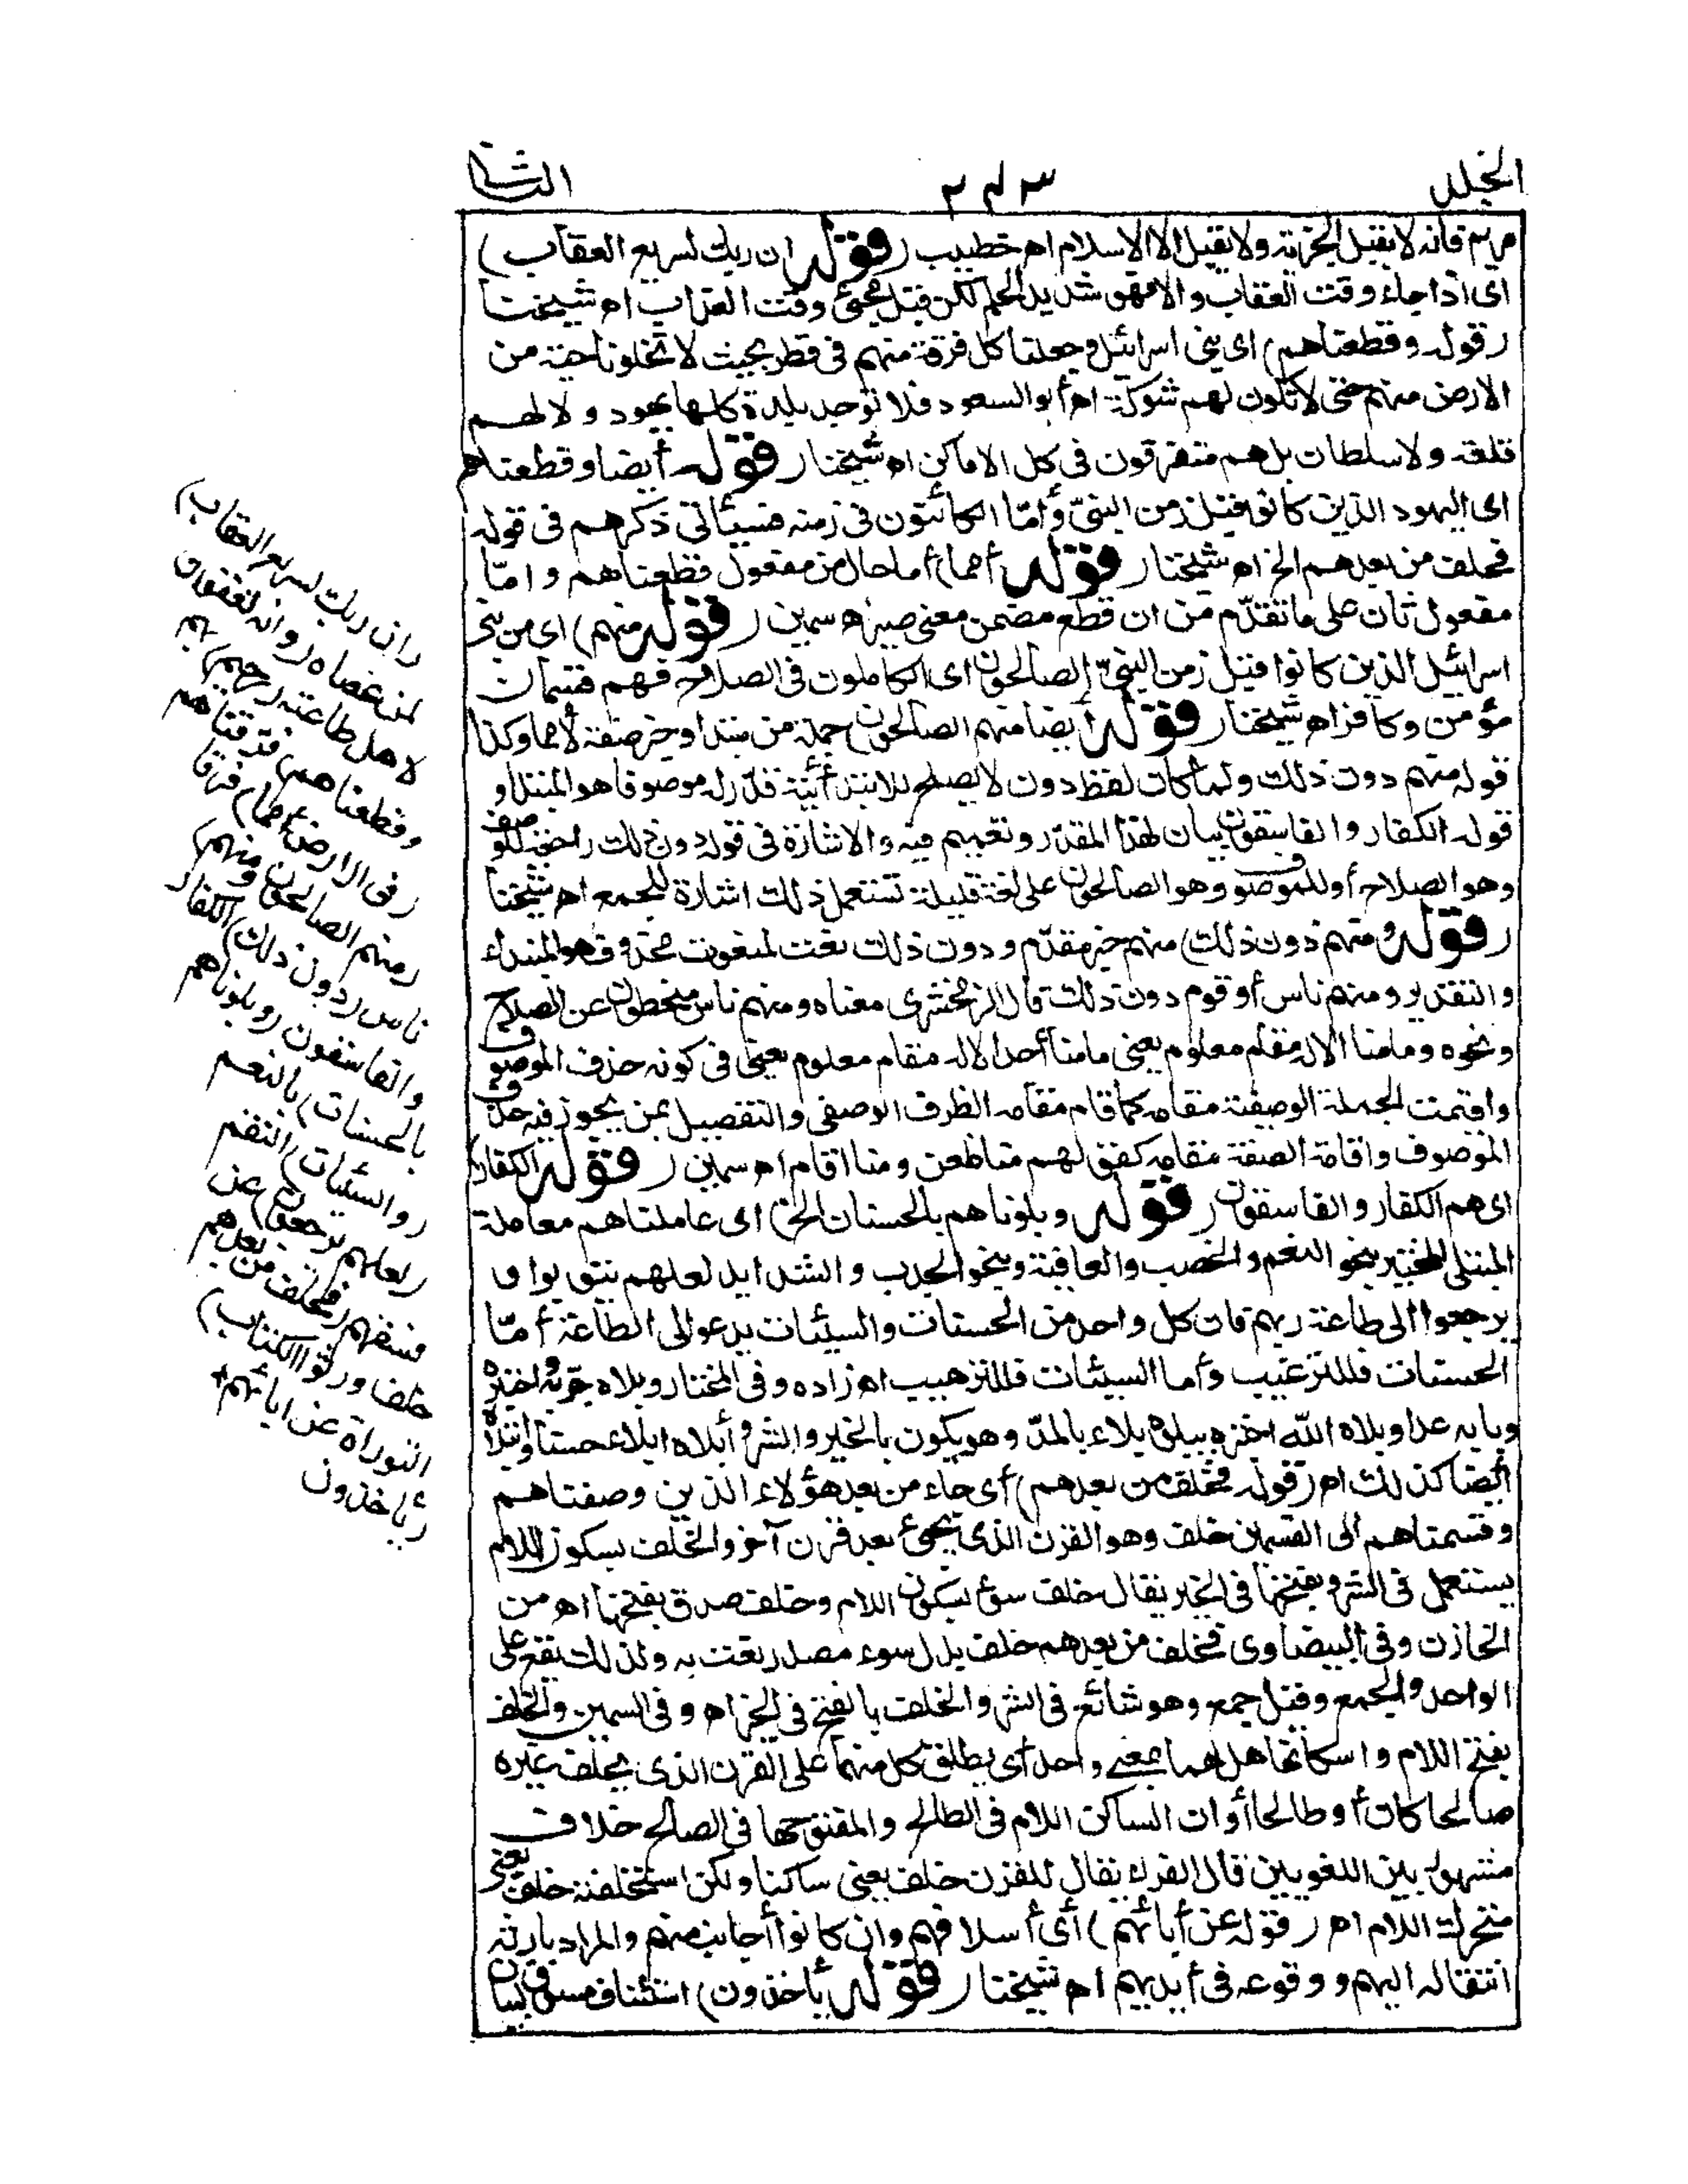 الجلد
٢٠٣
الثانى
مريم فانه لا يقبل الجزية ولا يقبل الا الاسلام اه خطيب (قوله ان ربك لسريع العقاب)
اى اذا جاء وقت العقاب والا فهو شديد الحلم لكن قبل مجئ وقت العذاب اه شيخنا
(قوله وقطعناهم) اى بنى اسرائيل وجعلنا كل فرقة منهم فى قطر بحيث لا تخلو ناحية من
الارض منهم حتى لا تكون لهم شوكة اه أبو السعود فلا توجد بلدة كلها يهود ولا لهم
قلعة ولا سلطان بل هم متفرقون فى كل الاماكن اه شيخنا (قوله أيضا وقطعناهم
اى اليهود الذين كانوا قبل زمن النبىّ وأمّا الكائنون فى زمنه فسيأتى ذكرهم فى قوله
فخلف من بعدهم الخ اه شيخنا (قوله أمما) أما حال من مفعول قطعناهم وامّا
مفعول ثان على ما تقدّم من ان قطع مضمن معنى صير اه سمين (قوله منهم) اى من بنى
اسرائيل الذين كانوا قبل زمن النبىّ الصالحون اى الكاملون فى الصلاح فهم قسمان
مؤمن وكافر اه شيخنا (قوله أيضا منهم الصالحون) جملة من مبتدا وخبر صفة لأمما وكذا
قوله منهم دون ذلك ولما كان لفظ دون لا يصلح للابتدأئية قدّر له موصوفا هو المبتدأ و
قوله الكفار والفاسقون بيان لهذا المقدّر وتعميم فيه والاشارة فى قوله دون ذلك راجعة للوصف
وهو الصلاح أو للموصوف وهو الصالحون على لغة قليلة تستعمل ذلك اشارة للجمع اه شيخنا
(قوله ومنهم دون ذلك) منهم خبر مقدّم ودون ذلك نعت لمنعوت محذوف هو المبتداء
والتقدير ومنهم ناس أو قوم دون ذلك قال الزمخشرى معناه ومنهم ناس منحطون عن الصلاح
ونحوه وما منا الا له مقام معلوم يعنى ما منا أحد الا له مقام معلوم يعنى فى كونه حذف الموصوف
واقيمت الجملة الوصفية مقامه كما قام مقامه الظرف الوصفى والتفصيل بمن يجوز فيه حذف
الموصوف واقامة الصفة مقامه كقولهم منا ظعن ومنا اقام اه سمين (قوله الكفار)
اى هم الكفار والفاسقون (قوله وبلوناهم بالحسنات الخ) اى عاملناهم معاملة
المبتلى المختبر بنحو النعم والخصب والعافية وبنحو الجدب والشدايد لعلهم يتوبوا و
يرجعوا الى طاعة ربهم فان كل واحد من الحسنات والسيئات يدعو الى الطاعة أمّا
الحسنات فللترغيب وأما السيئات فللترهيب اه زاده وفى المختار وبلاه جرّبه واختبره
وبابه عدا وبلاه الله اختبره يبلوه بلاء بالمدّ وهو يكون بالخير والشر وأبلاه ابلاء حسنا وابتلاه
أيضا كذلك اه (قوله فخلف من بعدهم) أى جاء من بعد هؤلاء الذين وصفناهم
وقسمناهم الى القسمين خلف وهو القرن الذى يجئ بعد قرن آخر والخلف بسكون اللام
يستعمل فى الشر وبفتحها فى الخير يقال خلف سوء بسكون اللام وخلف صدق بفتحها اه من
الخازن وفى البيضاوى فخلف من بعدهم خلف بدل سوء مصدر نعت به ولذلك يقع على
الواحد والجمع وقيل جمع وهو شائع فى الشر والخلف بالفتح فى الخير اه وفى السمين والخلف
بفتح اللام واسكانها هل هما بمعنى واحد أى يطلق كل منهما على القرن الذى يخلف غيره
صالحا كان أو طالحا أو ان الساكن اللام فى الطالح والمفتوحها فى الصالح خلاف
مشهور بين اللغويين قال الفراء يقال للقرن خلف يعنى ساكنا ولكن استخلفته خلف يعنى
متحرك اللام اه (قوله عن أبائهم) أى أسلافهم وان كانوا أجانب منهم والمراد بارثه
انتقاله اليهم ووقوعه فى أيديهم اه شيخنا (قوله يأخذون) استئناف مسوق لبيان
(ان ربك لسريع العقاب)
لمن عصاه (وانه لغفور)
لاهل طاعته (رحيم) بهم
(وقطعناهم) فرقناهم
(فى الارض أمما) فرقا
(منهم الصالحون ومنهم)
ناس (دون ذلك) الكفار
والفاسقون (وبلوناهم
بالحسنات) بالنعم
(والسيئات) النقم
(لعلهم يرجعون) عن
فسقهم (فخلف من بعدهم
خلف ورثوا الكتاب)
التوراة عن ابائهم
(يأخذون